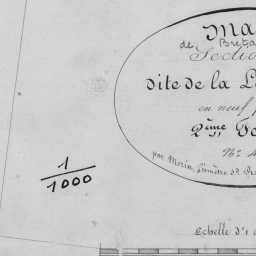 Ma
de Breta
Sectio
dite de la L
en neuf
2ème
N°
par Morin, Géomètre de
1
1000
Echelle d'1